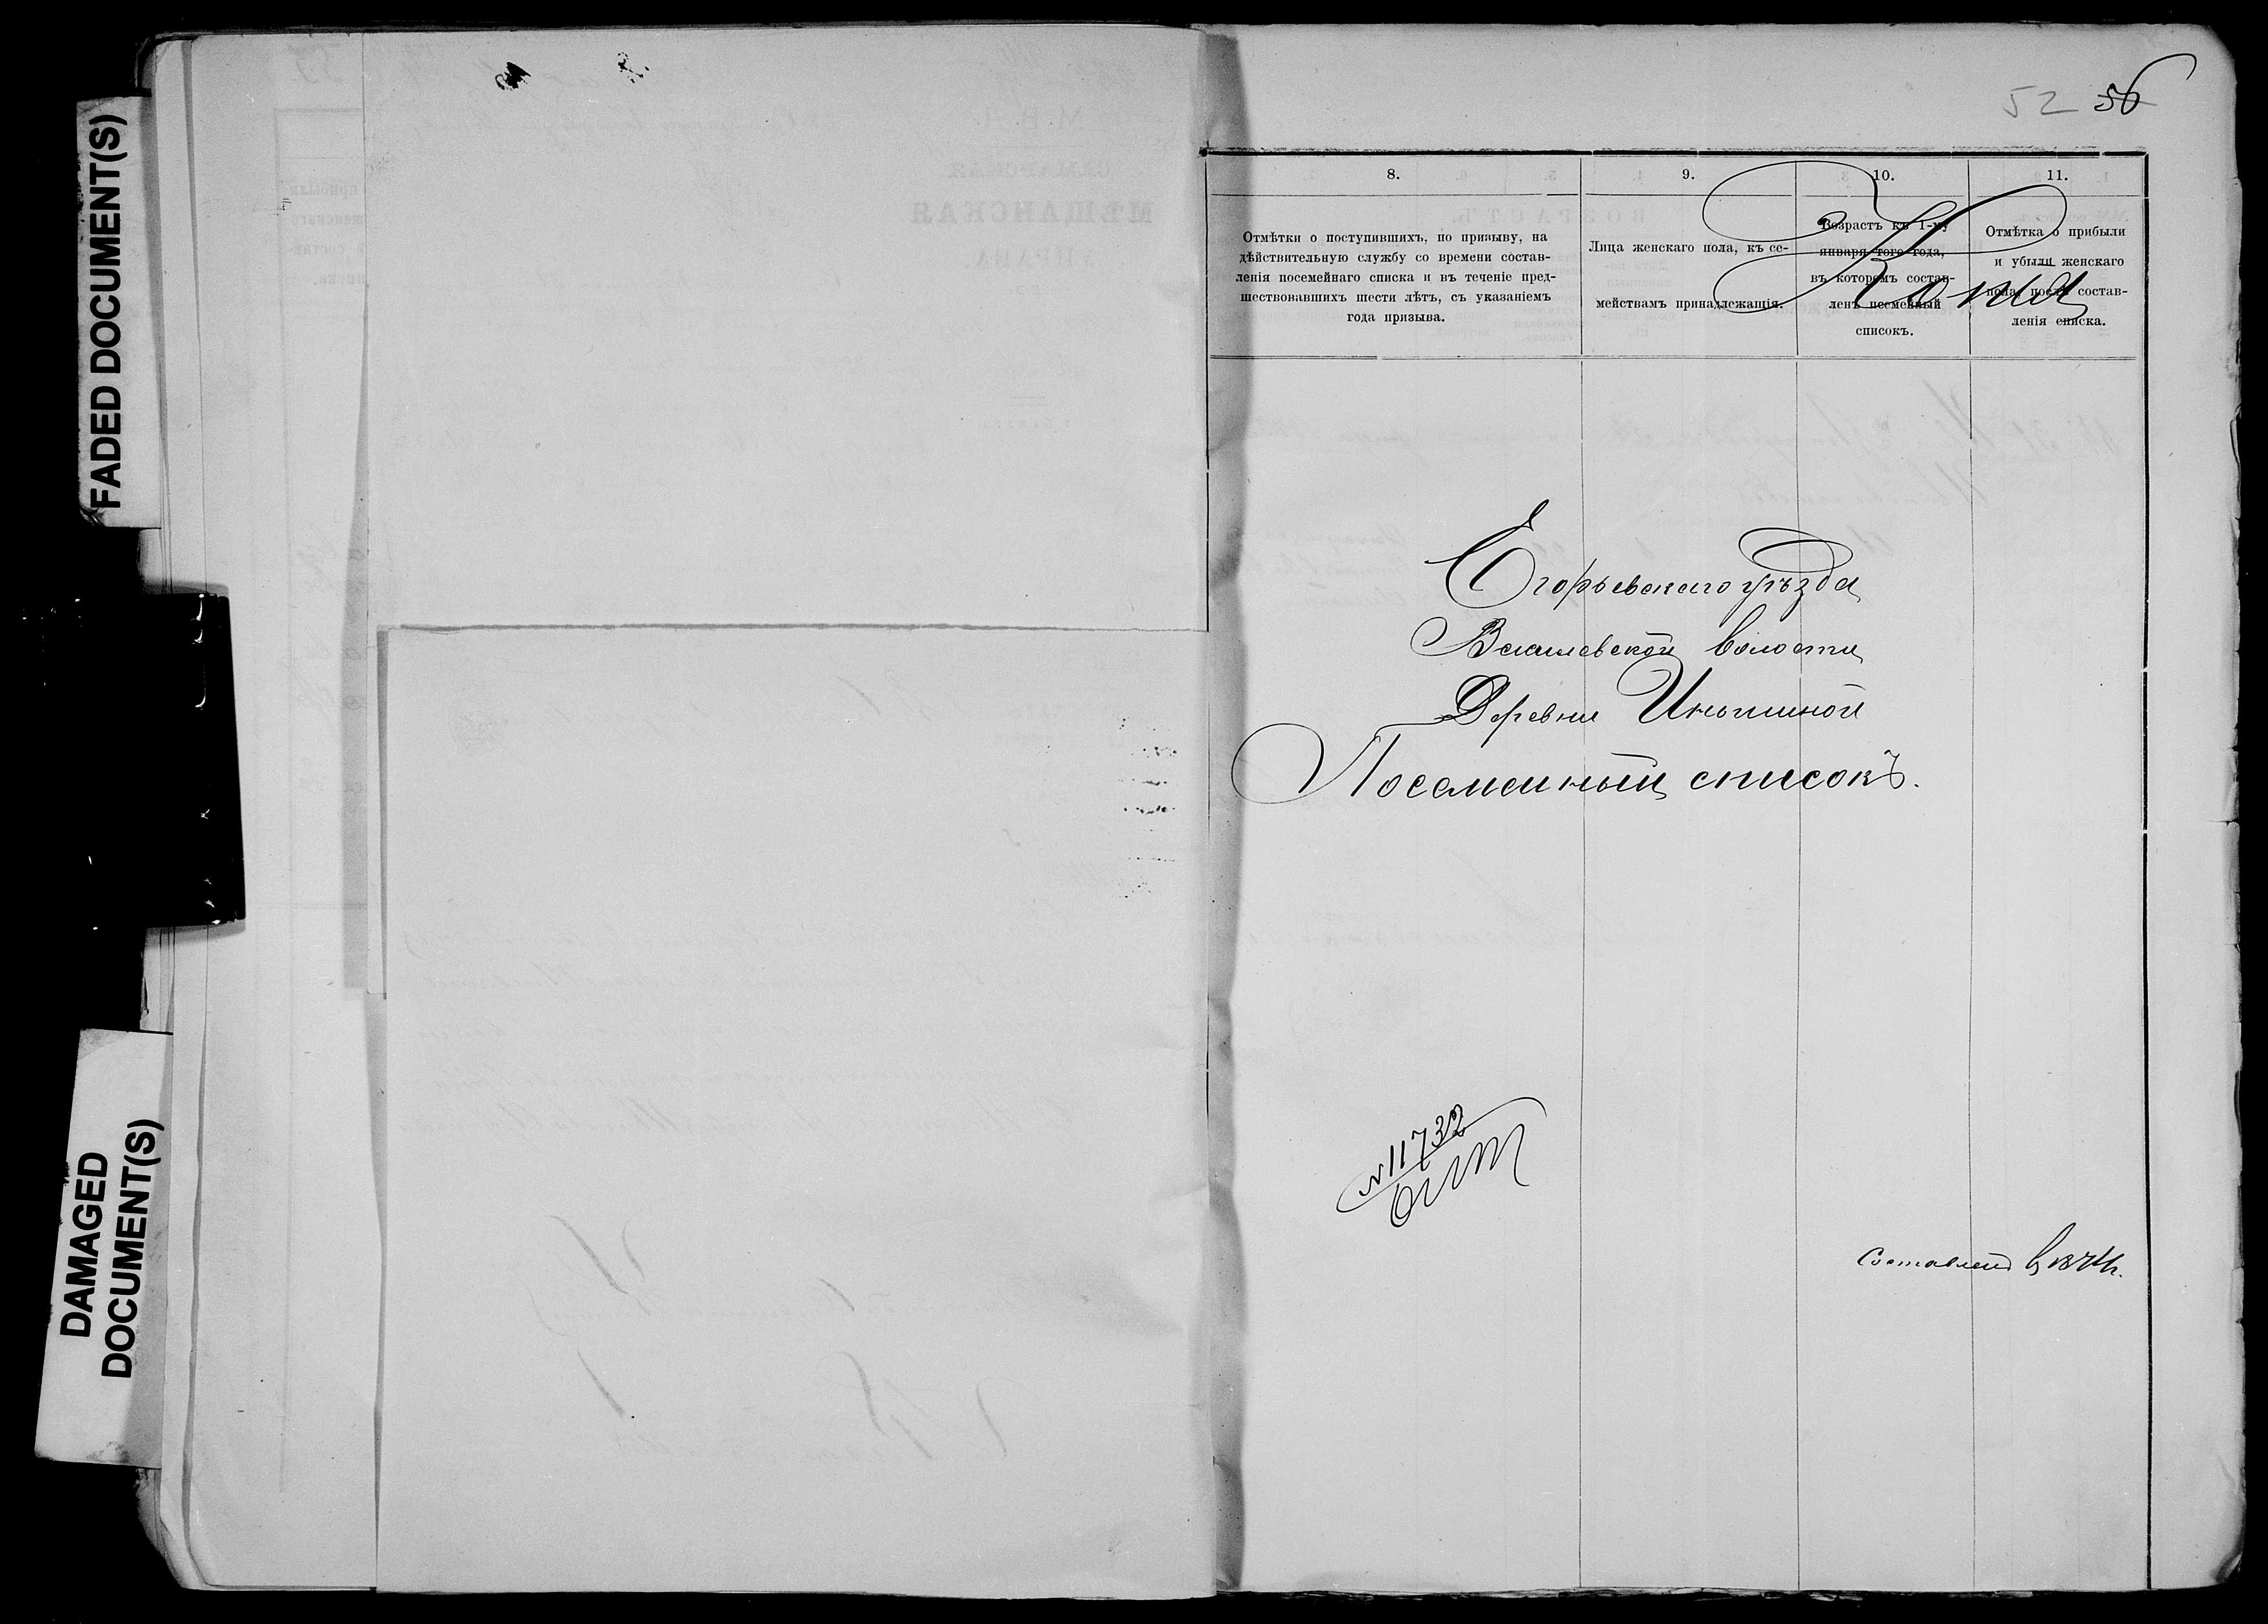 FADED DOCUMENT(S)
DAMAGED
DOCUMENT(S)
52 56
8.
9.
10.
11.
Отмѣтки о поступившихъ, по призыву, на
дѣйствительную службу со времени состав-
ленія посемейнаго списка и въ теченіе пред-
шествовавшихъ шести лѣтъ, съ указаніемъ
года призыва.
Лица женскаго пола, къ се-
мействамъ принадлежащія.
Возрастъ къ 1-му
января того года,
въ которомъ состав-
ленъ посемейный
списокъ.
Отмѣтка о прибыли
и убыли женскаго
пола, послѣ состав-
ленія списка.
Копія
Егорьевскаго уѣзда
волости
Деревни
Посемейный списокъ.
№ 11732
Составленъ въ